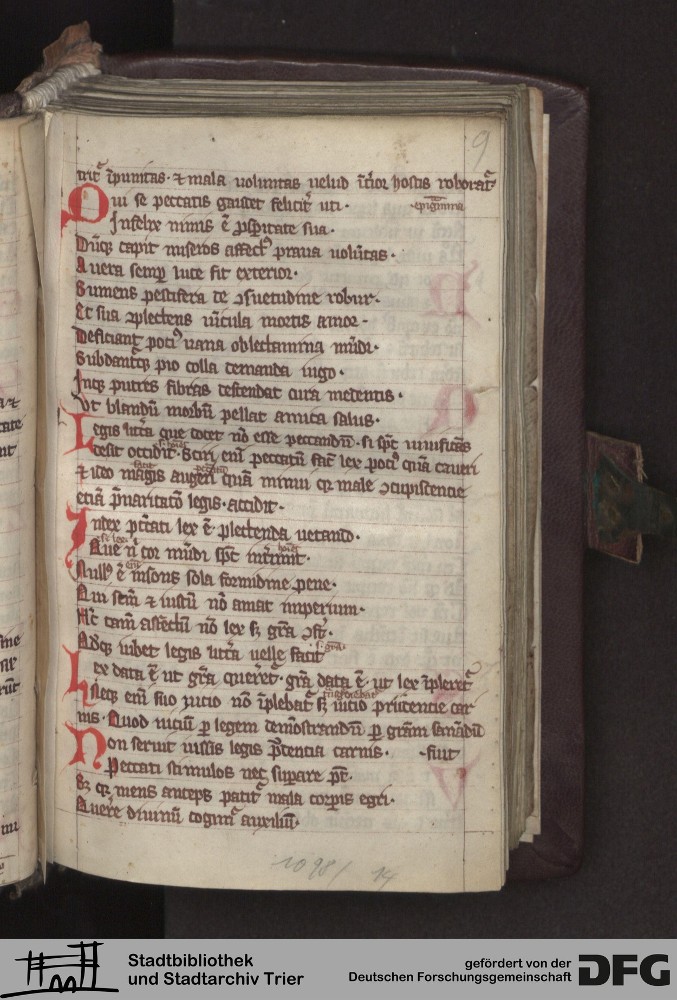 9
trit᷑ īpunitas · ⁊ mala uoluntas uelud īt᷑ior hostis roborat᷑
Qui se peccatis gaudet felicit᷑ uti · epigrāma
Infelix nimis ē ꝓspitate sua ·
Dūꝙ capit miseros affectꝰ praua uolūtas ·
A uera semꝑ luce fit exterior ·
Sumens pestifera de ꝯsuetudine robur ·
Et sua ꝯplectens uīcula mortis amor ·
Deficiant potiꝰ uana oblectamina mūdi ·
Subdantꝙ pio colla domanda iugo ·
Inꝙ putres fibras descendat cura medentis ·
Vt blandū morbū pellat amica salus ·
Legis litt᷑a que docet nō esse peccandū · si spc̄ uiuificās
desit occidit · Sciri eni peccatū facit lex potiꝰ quā caueri
⁊ ideo magis augeri quā minui qꝛ male ꝯcupiscentie
etiā p̄uaricatō legis · accidit ·
Index pc̄cati lex ē plectenda uetando ·
Que nī cor mūdi spc̄
Nullꝰ ē insons sola formidine pene ·
Qui scm̄ ⁊ iustū nō amat imperium ·
Hūc tam affectū nō lex sꝫ gr̄a ꝯfert ·
Adꝙ iubet legis litt᷑a uelle facit
Lex data ē ut gr̄a queret᷑ · gr̄a data ē · ut lex īpleret᷑
Neꝙ enī suo uicio nō īplebat᷑ sꝫ uicio prudentie car
nis · Quod uiciū ꝑ legem demōstrandū ꝑ gr̄am sanādū
Non seruit iussis legis prudentia carnis · fuit
Peccati stimulos nec suꝑare pt̄ ·
Sꝫ qꝛ mens anceps patit᷑ mala corꝑis egri ·
Querere diuinū cogit᷑ auxiliū ·
1098/ 14
Stadtbibliothek
und Stadtarchiv Trier
gefördert von der
Deutschen Forschungsgemeinschaft
DFG